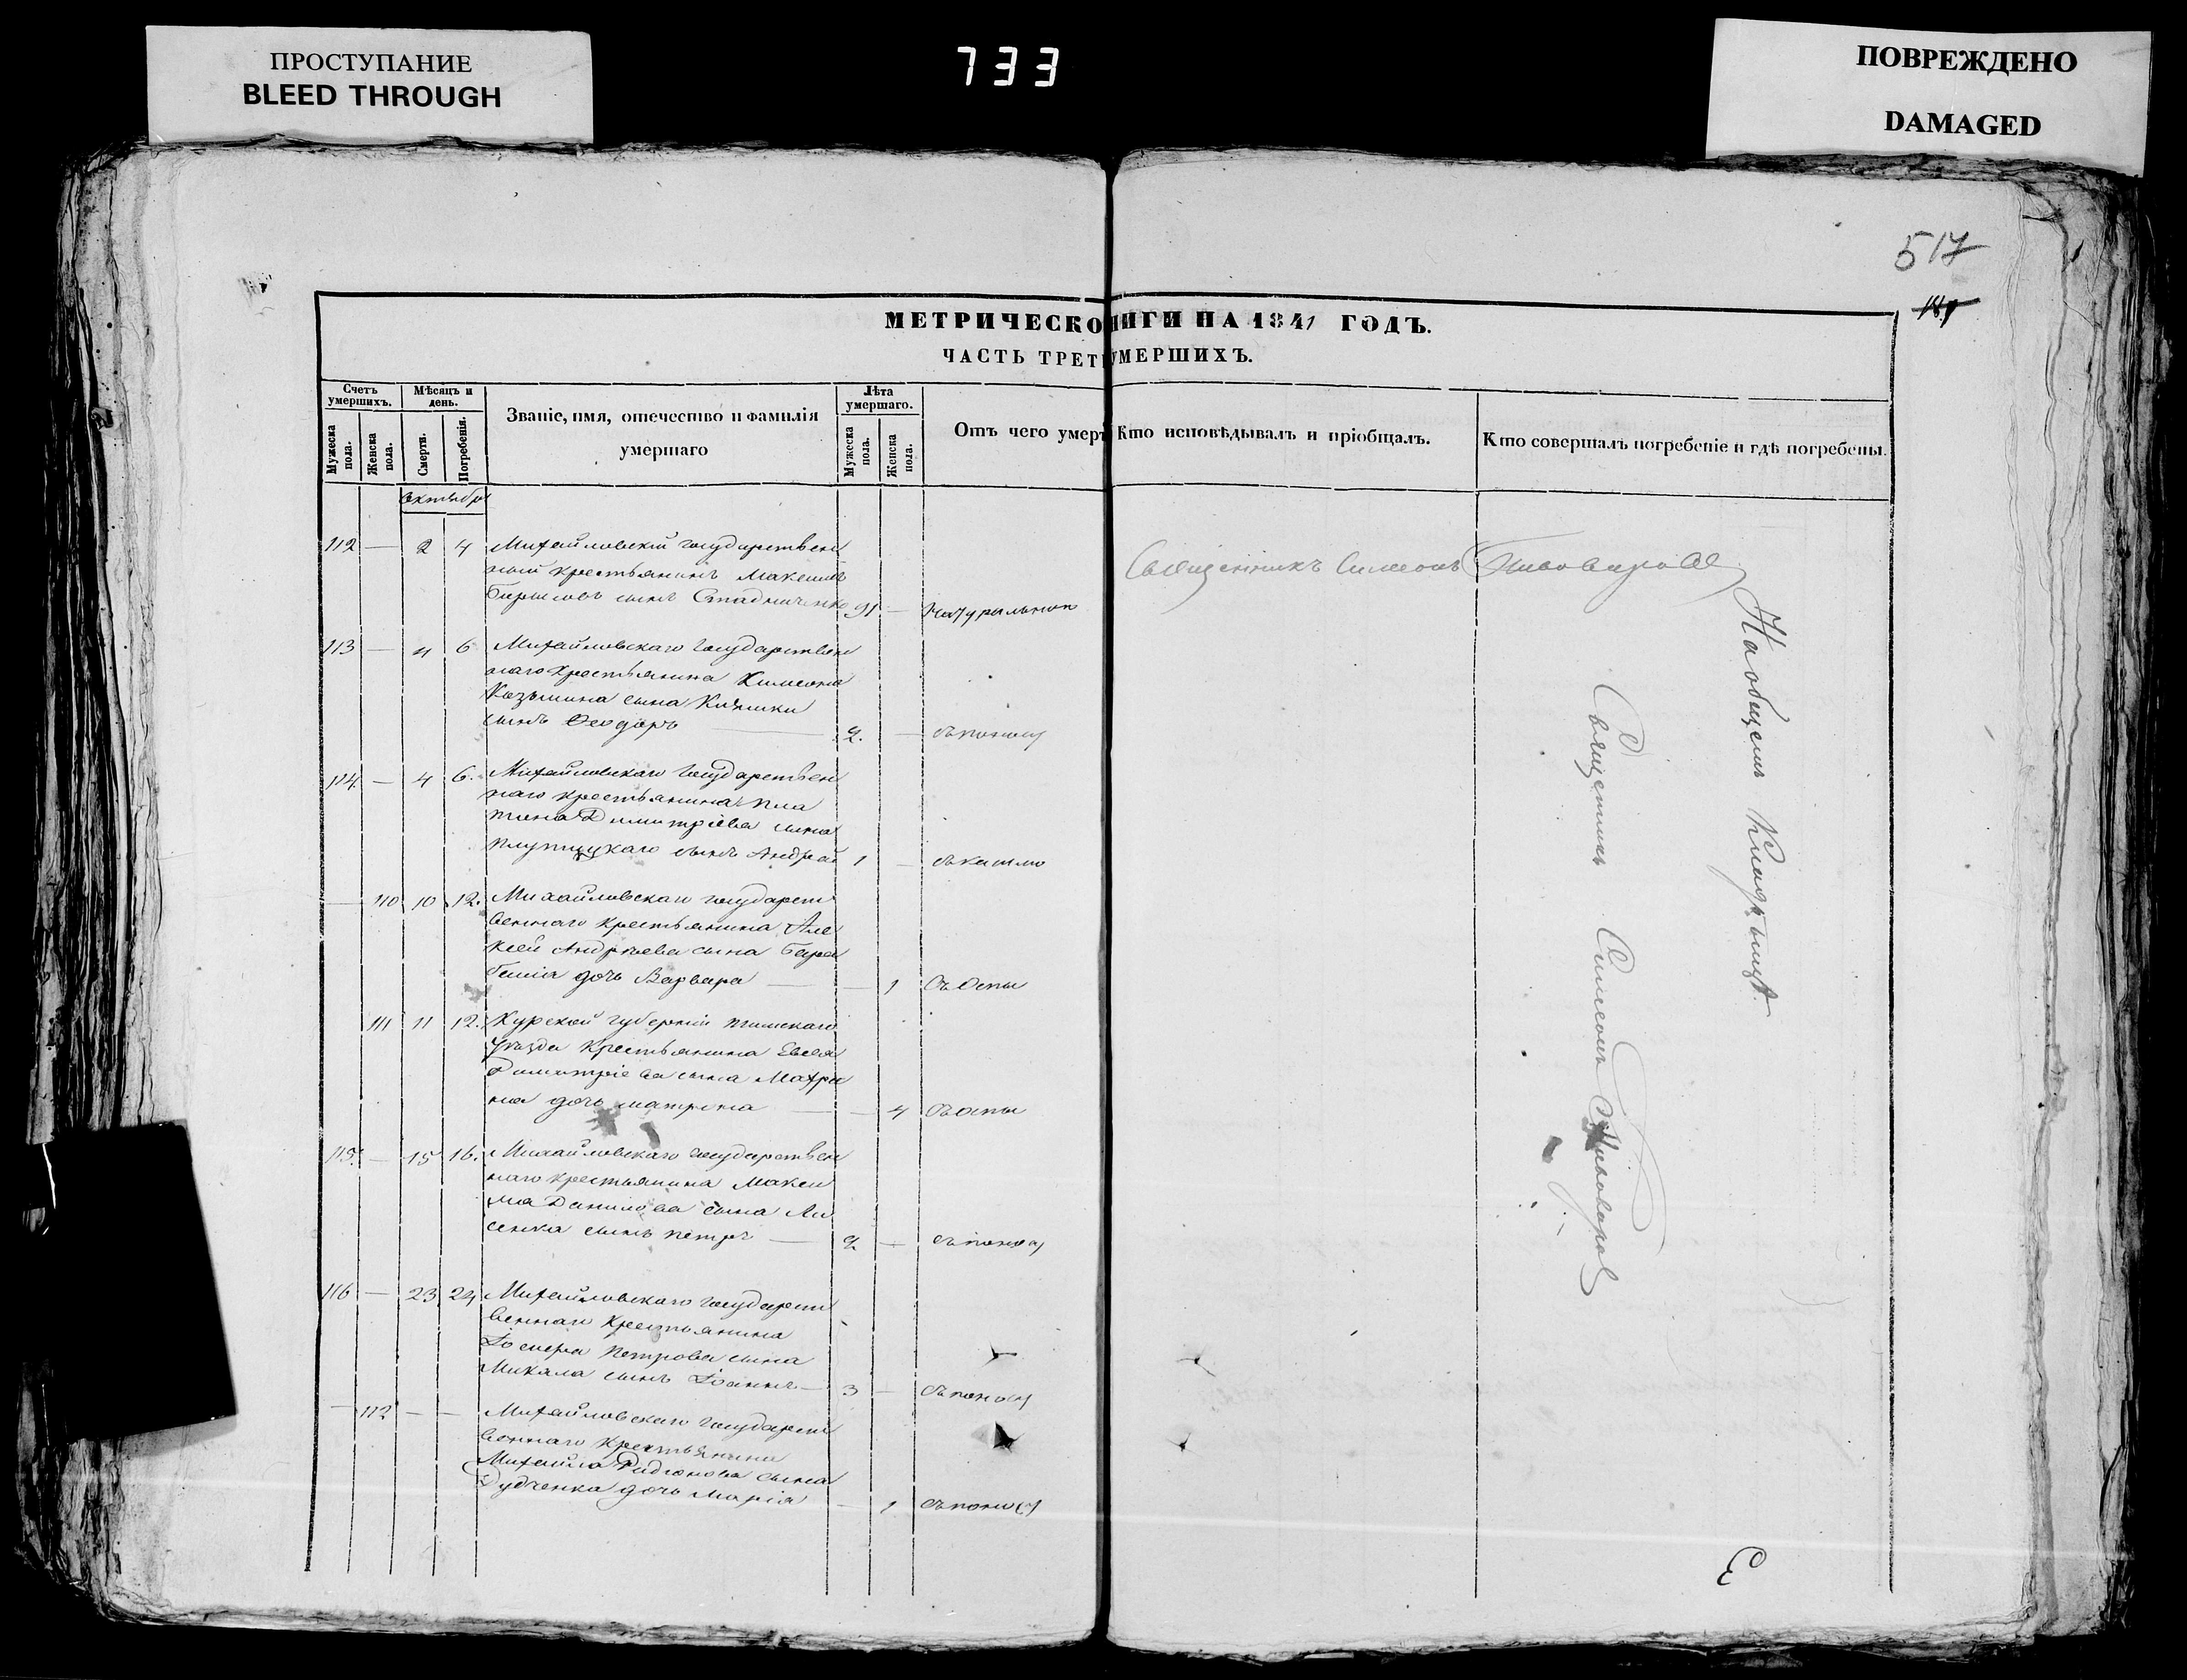 ПРОСТУПАНИЕ
BLEED THROUGH
733
ПОВРЕЖДЕНО
DAMAGED
517
МЕТРИЧЕСКО ИГИ НА 1841 ГОДЪ.
ЧАСТЬ ТРЕТ УМЕРШИХЪ.
Счетъ умершихъ.
Мужеска пола.
Женска пола.
Мѣсяцъ и день.
Смерти.
Погребенія.
Званіе, имя, отечество и фамилія
умершаго
Лѣта умершаго.
Мужеска пола.
Женска пола.
Отъ чего умер
Кто исповѣдывалъ и пріобщалъ.
Кто совершалъ погребеніе и гдѣ погребены.
октябрь
112 — 2 4 Михайловскій государствен
ный крестьянинъ Максимъ
Борисовъ сынъ Стадниченко 91 —
Священникъ Симеонъ Пивоваровъ
113 — 4 6 Михайловскаго государствен
наго крестьянина Симеона
Козьмина сына
сынъ Феодоръ — 2. — съ поносу
114 — 4 6. Михайловскаго государствен
наго крестьянина Пла
тона Димитріева сына
сынъ Андрей 1 — съ кашлю
— 110 10 12. Михайловскаго государст
веннаго крестьянина Але
ксей Андреева сына
дочь Варвара — — 1 Съ Оспы
111 11 12. Курской губерніи тимскаго
Уѣзда крестьянина Евсея
Димитріева сына
дочь матрона — — 4 Съ оспы
115. — 15 16. Михайловскаго государствен
наго крестьянина Макси
ма Данилова сына Ли
сенка сынъ петръ — 2 — съ поносу
116 — 23 24 Михайловскаго государст
веннаго крестьянина
Іосифа Петрова сына
Михала сынъ Іоаннъ — 3 — съ поносу
— 112 — — Михайловскаго государст
веннаго крестьянина
Михаила Родіонова сына
Дудченка дочь Марія — 1 съ поносу
На общемъ Кладбищѣ.
Священникъ Симеонъ Пивоваровъ